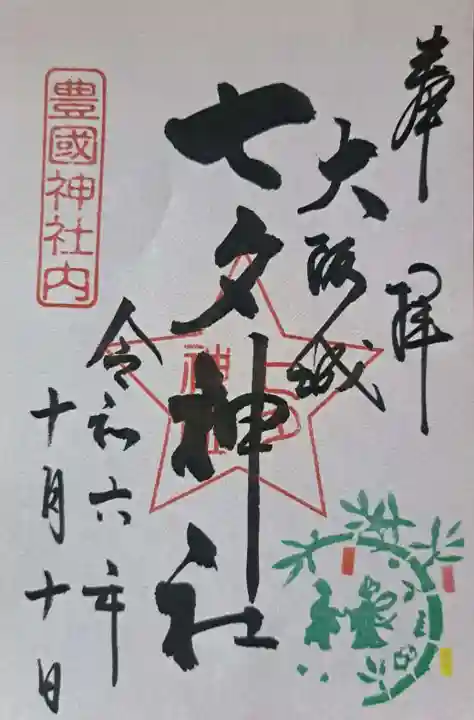 奉拝
大阪城
七夕神社
令和六年
十月十日
豊國神社内